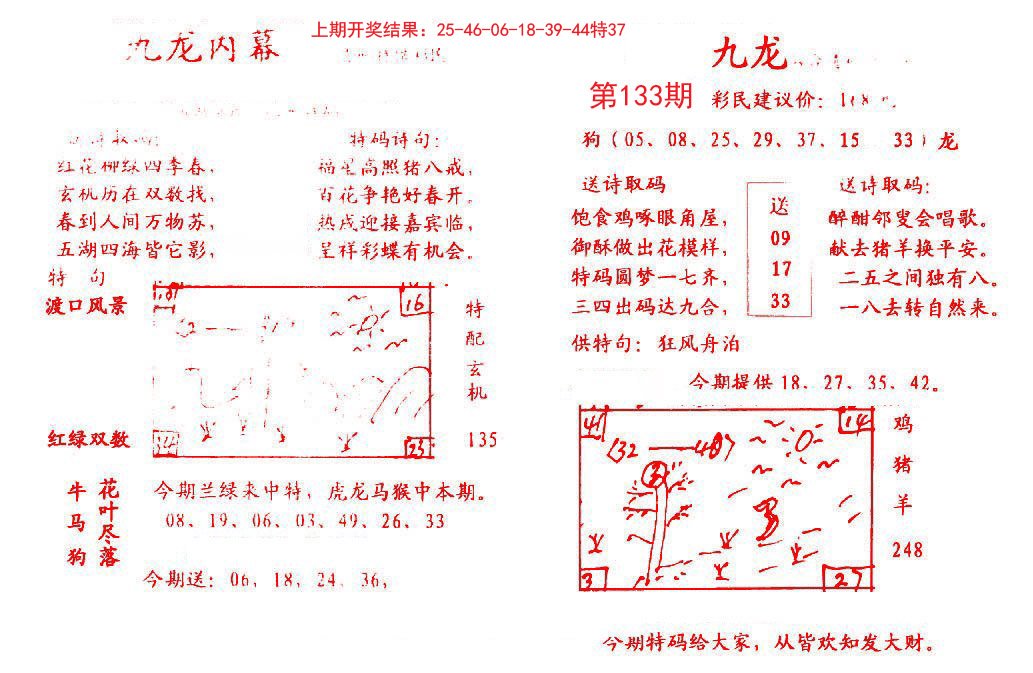 上期开奖结果：25-46-06-18-39-44特37
九龙内幕
特码诗句：
红花柳绿四季春，
玄机历在双数找，
春到人间万物苏，
五湖四海皆它影，
福星高照猪八戒，
百花争艳好春开。
热戌迎接嘉宾临，
呈祥彩蝶有机会。
特 句
渡口风景
红绿双数
16
23
特配玄机
135
牛马狗
花叶尽落
今期兰绿来中特，虎龙马猴中本期。
08、19、06、03、49、26、33
今期送：06、18、24、36，
九龙
第133期
彩民建议价：
狗（05、08、25、29、37、15 33）龙
送诗取码
饱食鸡啄眼角屋，
御酥做出花模样，
特码圆梦一七齐，
三四出码达九合，
送
09
17
33
送诗取码：
醉酣邻叟会唱歌。
献去猪羊换平安。
二五之间独有八。
一八去转自然来。
供特句：狂风舟泊
今期提供18、27、35、42。
41
14
3
27
鸡
猪
羊
248
今期特码给大家，从皆欢知发大财。